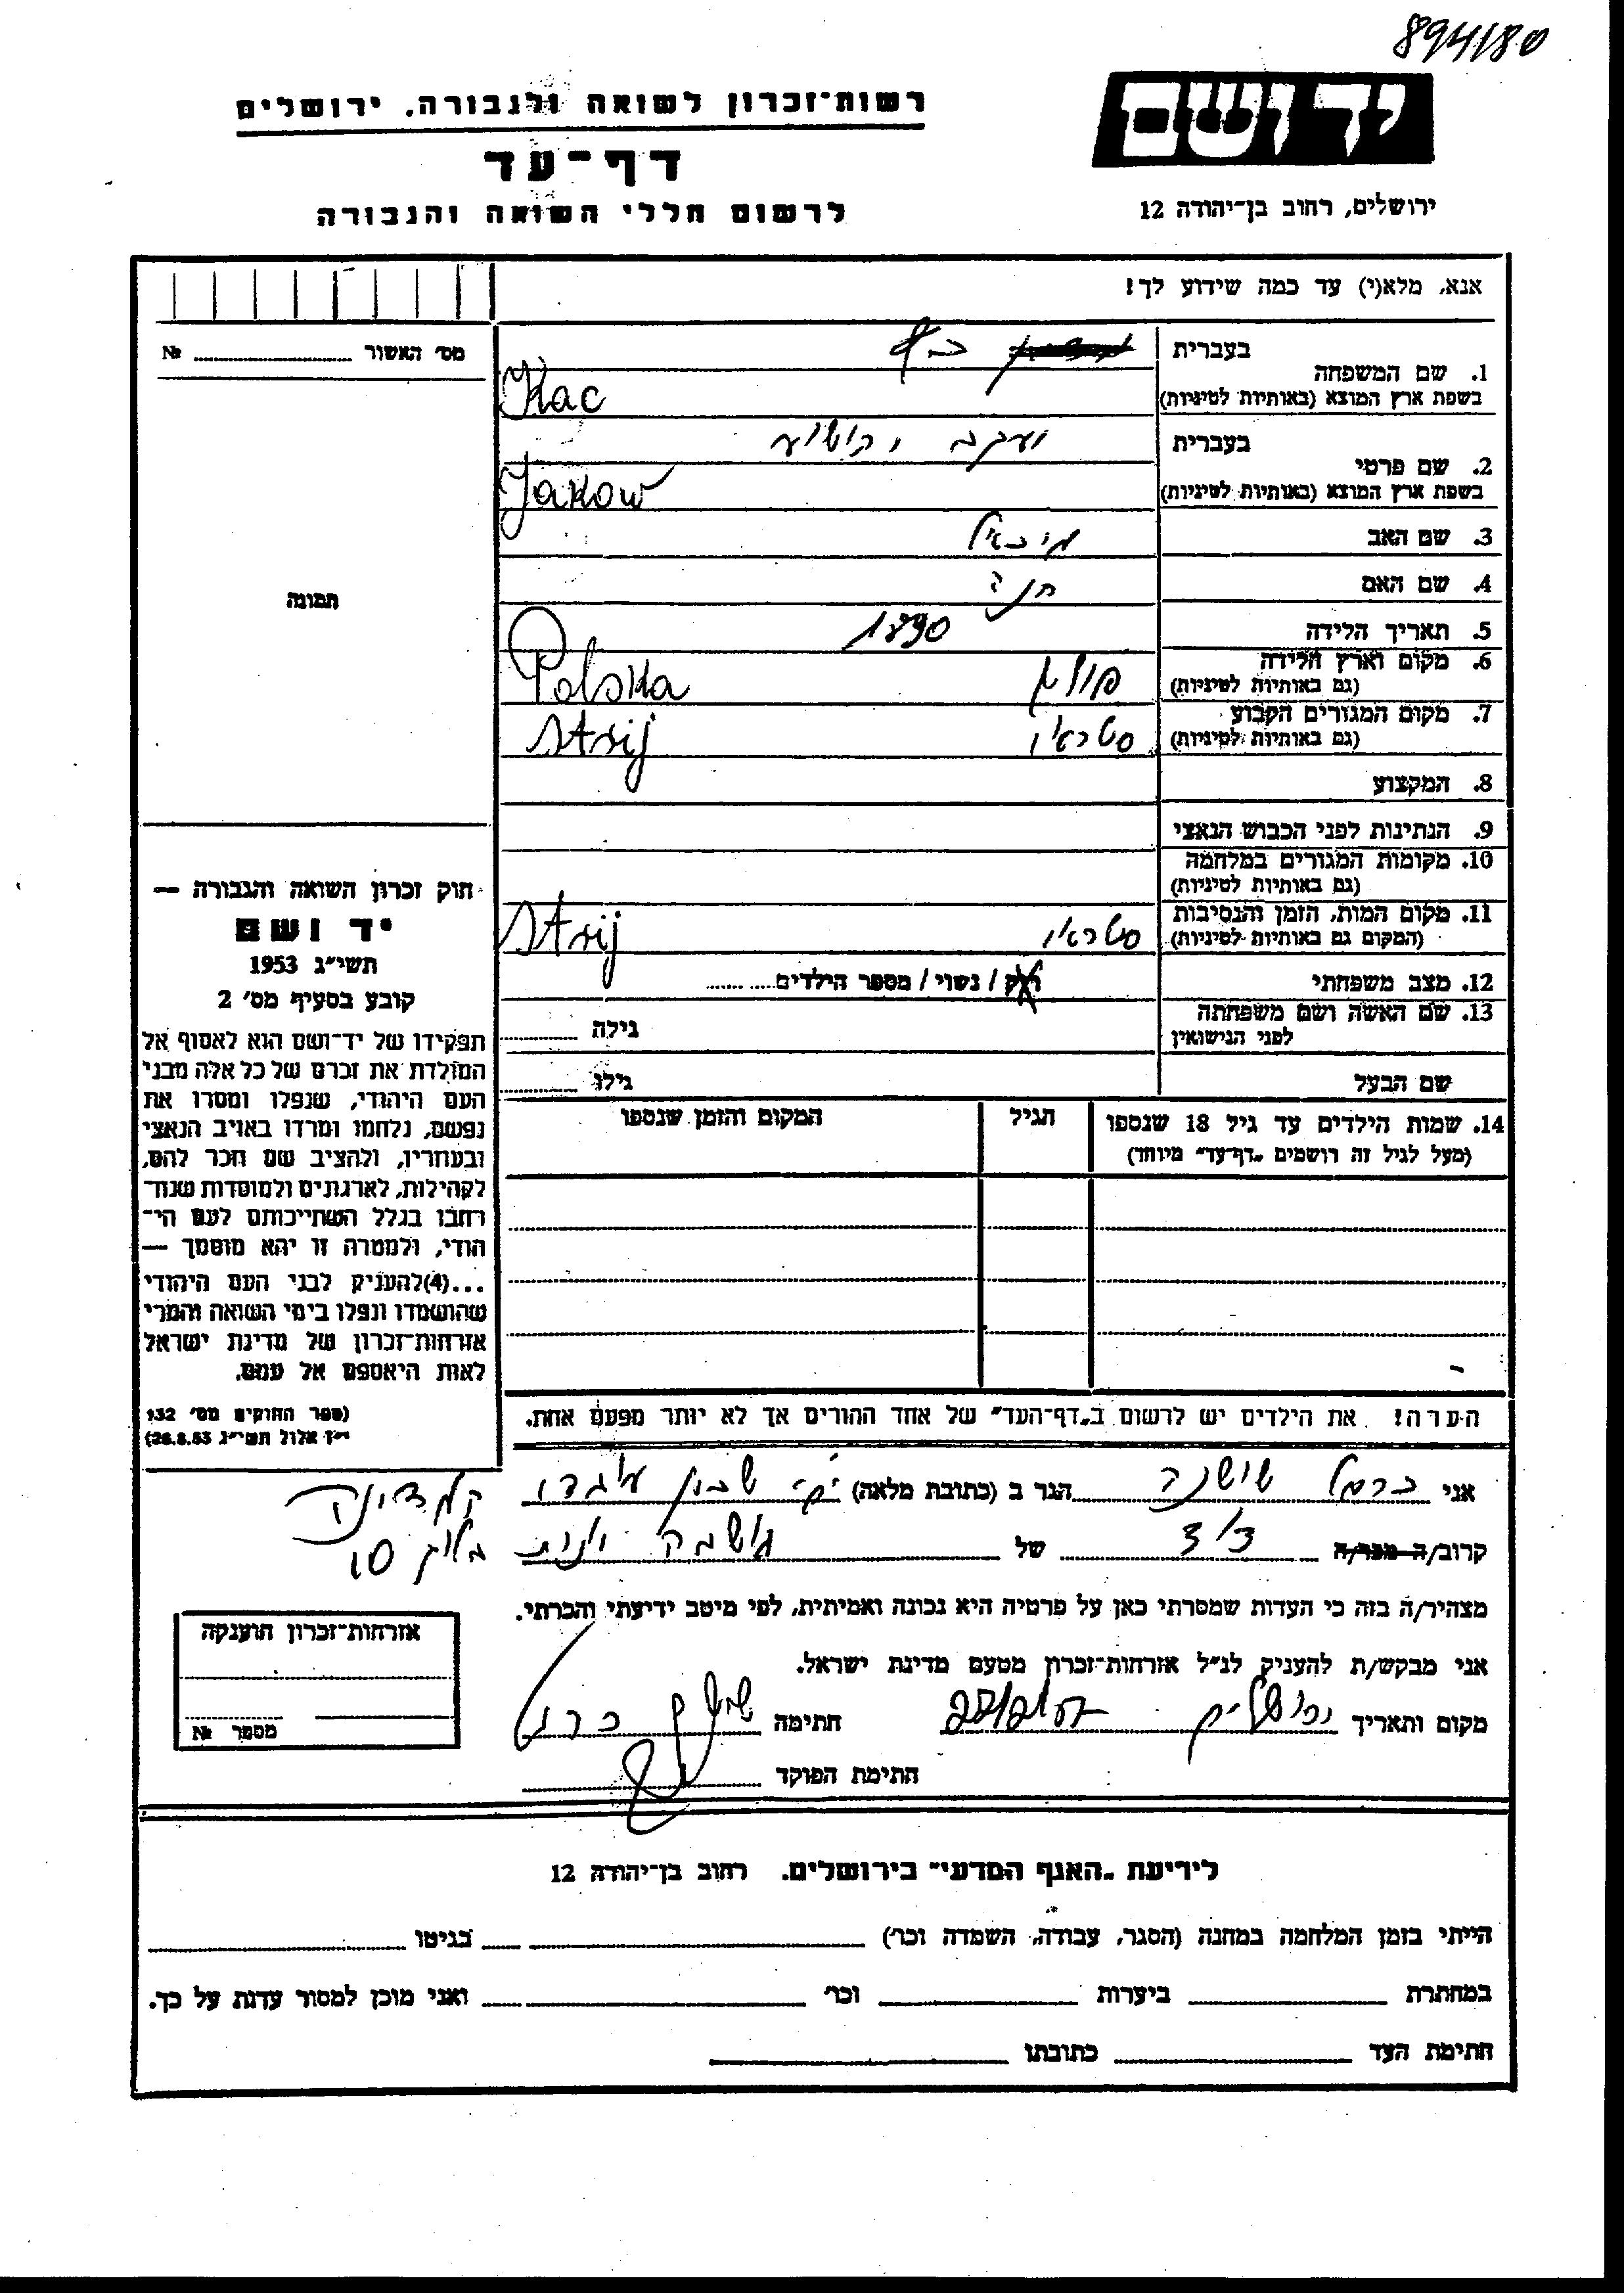 894/80
יד ושם
רשות־זכרון לשואה ולגבורה. ירושלים
דף־עד
ירושלים, רחוב בן־יהודה 12
לרשום חללי השואה והגבורה
אנא, מלא(י) עד כמה שידוע לך!
מס' האשור № 
תמונה
בעברית כץ
1. שם המשפחה
בשפת ארץ המוצא (באותיות לטיניות) Kac
בעברית יעקב יהושוע
2. שם פרטי
בשפת ארץ המוצא (באותיות לטיניות) Jakow
3. שם האב מיכאל
4. שם האם חנה
5. תאריך הלידה 1890
6. מקום וארץ הלידה
(גם באותיות לטיניות) פולין Polska
7. מקום המגורים הקבוע
(גם באותיות לטיניות) סטראי Strij
8. המקצוע
9. הנתינות לפני הכבוש הנאצי
10. מקומות המגורים במלחמה
(גם באותיות לטיניות)
11. מקום המות, הזמן והנסיבות
(המקום גם באותיות לטיניות) סטראי Strij
12. מצב משפחתי רוק / נשוי / מספר הילדים
13. שם האשה ושם משפחתה
לפני הנישואין גילה
שם הבעל גילו
14. שמות הילדים עד גיל 18 שנספו הגיל המקום והזמן שנספו
(מעל לגיל זה רושמים „דף־עד" מיוחד)
הערה! את הילדים יש לרשום ב„דף־העד" של אחד ההורים אך לא יותר מפעם אחת.
חוק זכרון השואה והגבורה —
יד ושם
תשי"ג 1953
קובע בסעיף מס' 2
תפקידו של יד־ושם הוא לאסוף אל
המולדת את זכרם של כל אלה מבני
העם היהודי, שנפלו ומסרו את
נפשם, נלחמו ומרדו באויב הנאצי
ובעוזריו, ולהציב שם וזכר להם,
לקהילות, לארגונים ולמוסדות שנח־
רחבו בגלל השתייכותם לעם הי־
הודי, ולמטרה זו יהא מוסמך —
...(4)להעניק לבני העם היהודי
שהושמדו ונפלו בימי השואה והמרי
אזרחות־זכרון של מדינת ישראל
לאות היאספם אל עמם.
(ספר החוקים מס' 132
י"ז אלול תשי"ג 28.8.53)
אני כרמל שושנה הגר ב (כתובת מלאה) שכון
בלוק 10
קרוב/ה מכר/ה של
מצהיר/ה בזה כי העדות שמסרתי כאן על פרטיה היא נכונה ואמיתית, לפי מיטב ידיעתי והכרתי.
אני מבקש/ת להעניק לנ"ל אזרחות־זכרון מטעם מדינת ישראל.
מקום ותאריך ירושלים חתימה
חתימת הפוקד
אזרחות־זכרון הוענקה
מספר №
לידיעת „האגף המדעי" בירושלים. רחוב בן־יהודה 12
הייתי בזמן המלחמה במחנה (הסגר, עבודה, השמדה וכו') בגיטו
במחתרת ביערות וכו' ואני מוכן למסור עדות על כך.
חתימת העד כתובתו